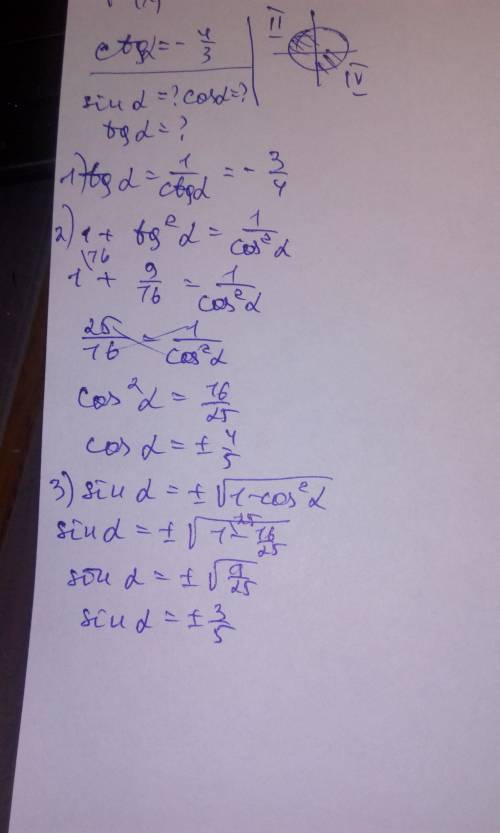 ctgα = - 4/3
II
IV
sin α = ? cos α = ?
tg α = ?
1) tg α = 1/ctgα = - 3/4
2) 1 + tg²α = 1/cos²α
1\16 + 9/16 = 1/cos²α
25/16 = 1/cos²α
cos²α = 16/25
cos α = ± 4/5
3) sin α = ± √(1-cos²α)
sin α = ± √(1\25 - 16/25)
sin α = ± √(9/25)
sin α = ± 3/5